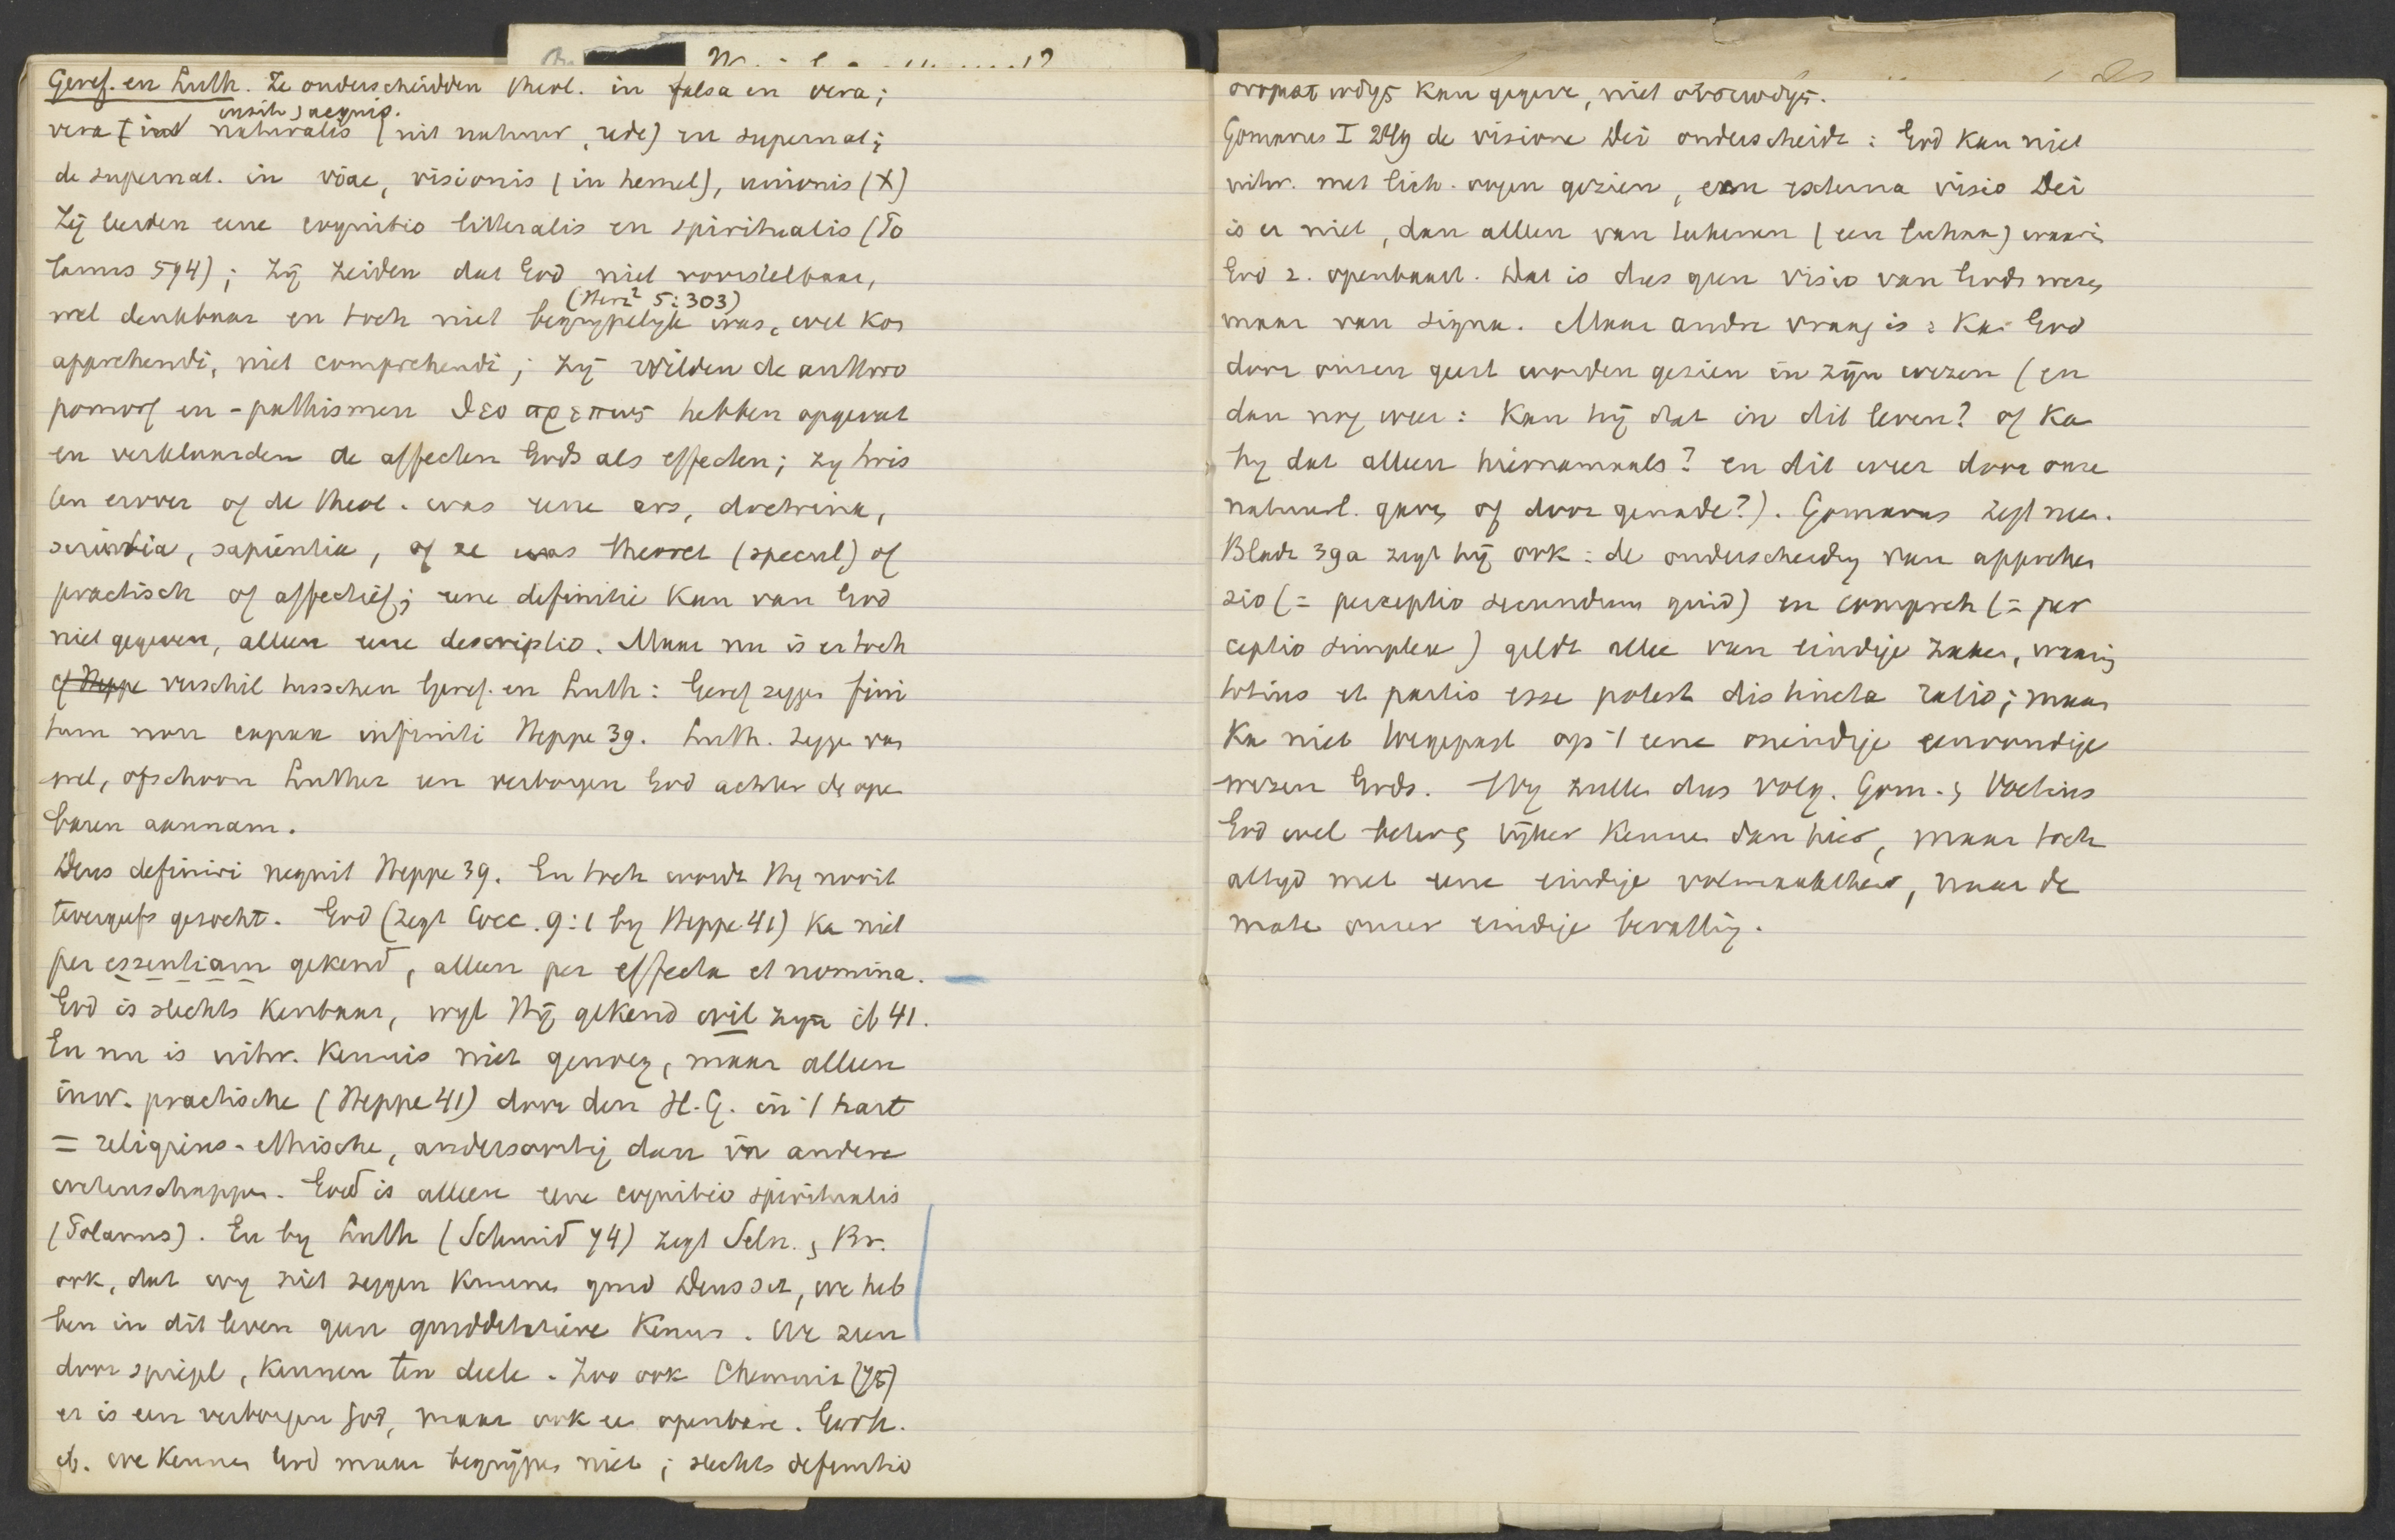 Geref. en Luth. Ze onderscheidden theol. in falsa en vera;
insita, acquis.
vera naturalis (uit natuur, rede) en supernat;
de supernat. in viae, visionis (in hemel), unionis (X)
Zij leerden eene cognitio litteralis en spiritualis (Po
lanus 594); zij zeiden dat God niet voorstelbaar,
(Herz² 5:303)
wel denkbaar en toch niet begrypelyk was, wel kon
apprehendi, niet comprehendi; zij wilden de anthro
pomorf en -pathismen θεοπρεπως hebben opgevat
en verklaarden de affecten Gods als effecten; zy twis
ten erover of de theol. was eene ars, doctrina,
scientia, sapientia, of ze was theoret (specul) of
practisch of affectief; eene definitie kan van God
niet gegeven, alleen eene descriptio. Maar nu is er toch
cf Heppe verschil tusschen Geref. en Luth: Geref zeggen fini
tum non capax infiniti Heppe 39. Luth. zeggen van
wel, ofschoon Luther een verborgen God achter de open
baren aannam.
Deus definiri nequit Heppe 39. En toch wordt Hy nooit
tevergeefs gezocht. God (zegt Cocc. 9:1 by Heppe 41) ka niet
per essentiam gekend, alleen per effecta et nomina.
God is slechts kenbaar, wyl Hij gekend wil zyn ib 41.
En nu is uitw. kennis niet genoeg, maar alleen
inw. practische (Heppe 41) door den H.G. in 't hart
= religieus-ethische, andersoortig dan in andere
wetenschappen. Goed is alleen eene cognitio spiritualis
(Polanus). En by Luth (Schmid 74) zegt Seln. Br.
ook, dat wy niet zeggen kunnen quid Deus sit, we heb
ben in dit leven geen quidditatieve kennis. We zien
door spiegel, kennen ten deele. Zoo ook Chemnit (75)
er is een verborgen God, maar ook ee openbare. Gerh.
ib. we kennen God maar begrijpen niet; slechts definitio
ονοματωδης kan gegeve, niet οὐσιωδης.
Gomarus I 249 de visione Dei onderscheidt: God kan niet
uitw. met lich. oogen gezien, een externa visio Dei
is er niet, dan alleen van teekenen (een lichaam) waarin
God z. openbaart. Dat is dus geen visio van Gods wezen
maar van signa. Maar andre vraag is: Kan God
door onzen geest worden gezien in zijn wezen (en
dan nog weer: kan hij dat in dit leven? of ka
hy dat alleen hiernamaals? en dit weer door onze
natuurl. gave of door genade?). Gomarus zegt nee.
Bladz 39a zegt hij ook: de onderscheiding van apprehen
sio (= perceptio secundum quid) en compreh (= per
ceptio simplex) geldt allee van eindige zaken, waarin
totius et partis esse potest distincta ratio; maar
ka niet toegepast op 't eene oneindige eenvoudige
wezen Gods. Wy zulle dus volg. Gom. Voetius
God wel beter, rijker kennen dan hier, maar toch
altyd met eene eindige volmaaktheid, naar de
mate onzer eindige bevatting.